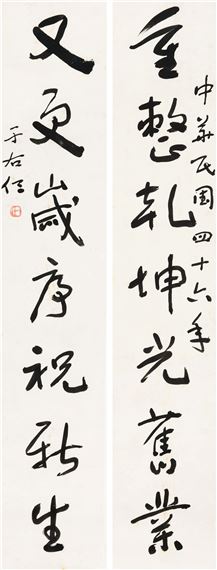 重整乾坤光舊業
中華民國四十六年
又更歲序祝新生
于右任